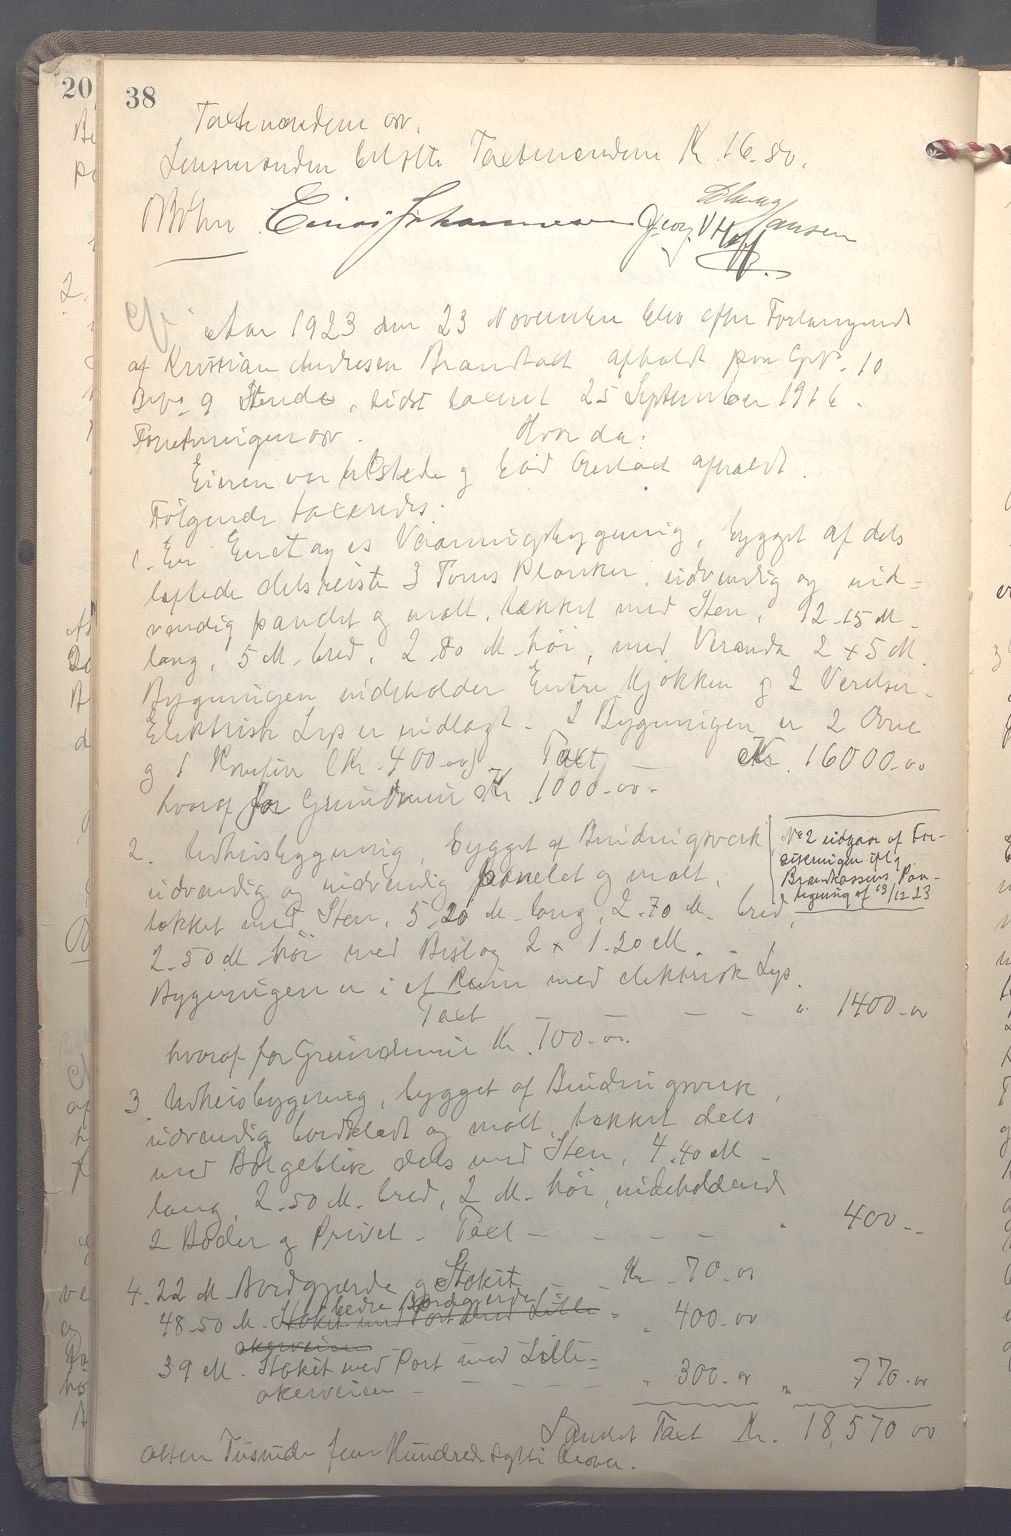 38
Taxtmændene osv.
Lensmanden bilolte Taxtmændene Kr. 16-80.
NBöhn Einar Johannessen Georg V Hoff Hansen
Aar 1923 den 23 November blev efter Forlangende
af Kristian Andresen Brandtaxt afholdt paa Gr№. 10
Br№ 9 Stende, sidst taxeret 25 September 1916.
Forretningen osv. Hvorda:
Eieren var tilstede og blev Aastact afholdt.
Følgende taxeredes.
1. En Enetages Vaaningsbygning, bygget af dels
laftede dels reiste 3 Toms Planker, udvendig og ind=
vendig panelet og malt, tækket med Sten, 12-15 M-
lang, 5 M- bred, 2-80 M- høi, med Veranda 2 x 5 M.
Bygningen indeholder Entre, Kjøkken og 2 Verelser-
Elektrisk Lys er indlagt- I Bygningen er 2 Ovne
og 1 Komfur (Kr- 400-oo) Taxt Kr. 16000-oo
hvoraf for Grundmur Kr. 1000-oo-
2. Udhusbygning, bygget af Bindingsverk
udvendig og indvendig panelet og malt,
tækket med Sten, 5-20 M- lang, 2-70 M- bred,
2-50 M høi med Bislag 2 x 1-20 M.
Bygningen er i et Rum med elektrisk Lys.
Taxt - - - - " 1400-oo
hvoraf for Grundmur Kr. 100-oo.
№ 2 udgaar af For-
sikringen iflg
Brandkassens Paa-
tegning af 13/12 23
3 Udhusbygning, bygget af Bindingsverk,
udvendig bordklædt og malt, tækket dels
med Bølgeblik dels med Sten, 4-40 M-
lang, 2-50 M. bred, 2 M- høi, indeholdende
2 Boder og Privet- Taxt - - - - " 400-
4. 22 M- Bordgjærde og Stakit - - Kr - 70-oo
bedre Bordgjerde
48-50 M- Stakit med Port mod Lille " 400-oo
akerveien
39 M- Stakit med Port mod Lille=
akerveien - - - - " 300-oo " 770-oo
Samlet Taxt Kr. 18,570 oo
atten Tusinde fem Hundrede sytti Kroner.
20
2.